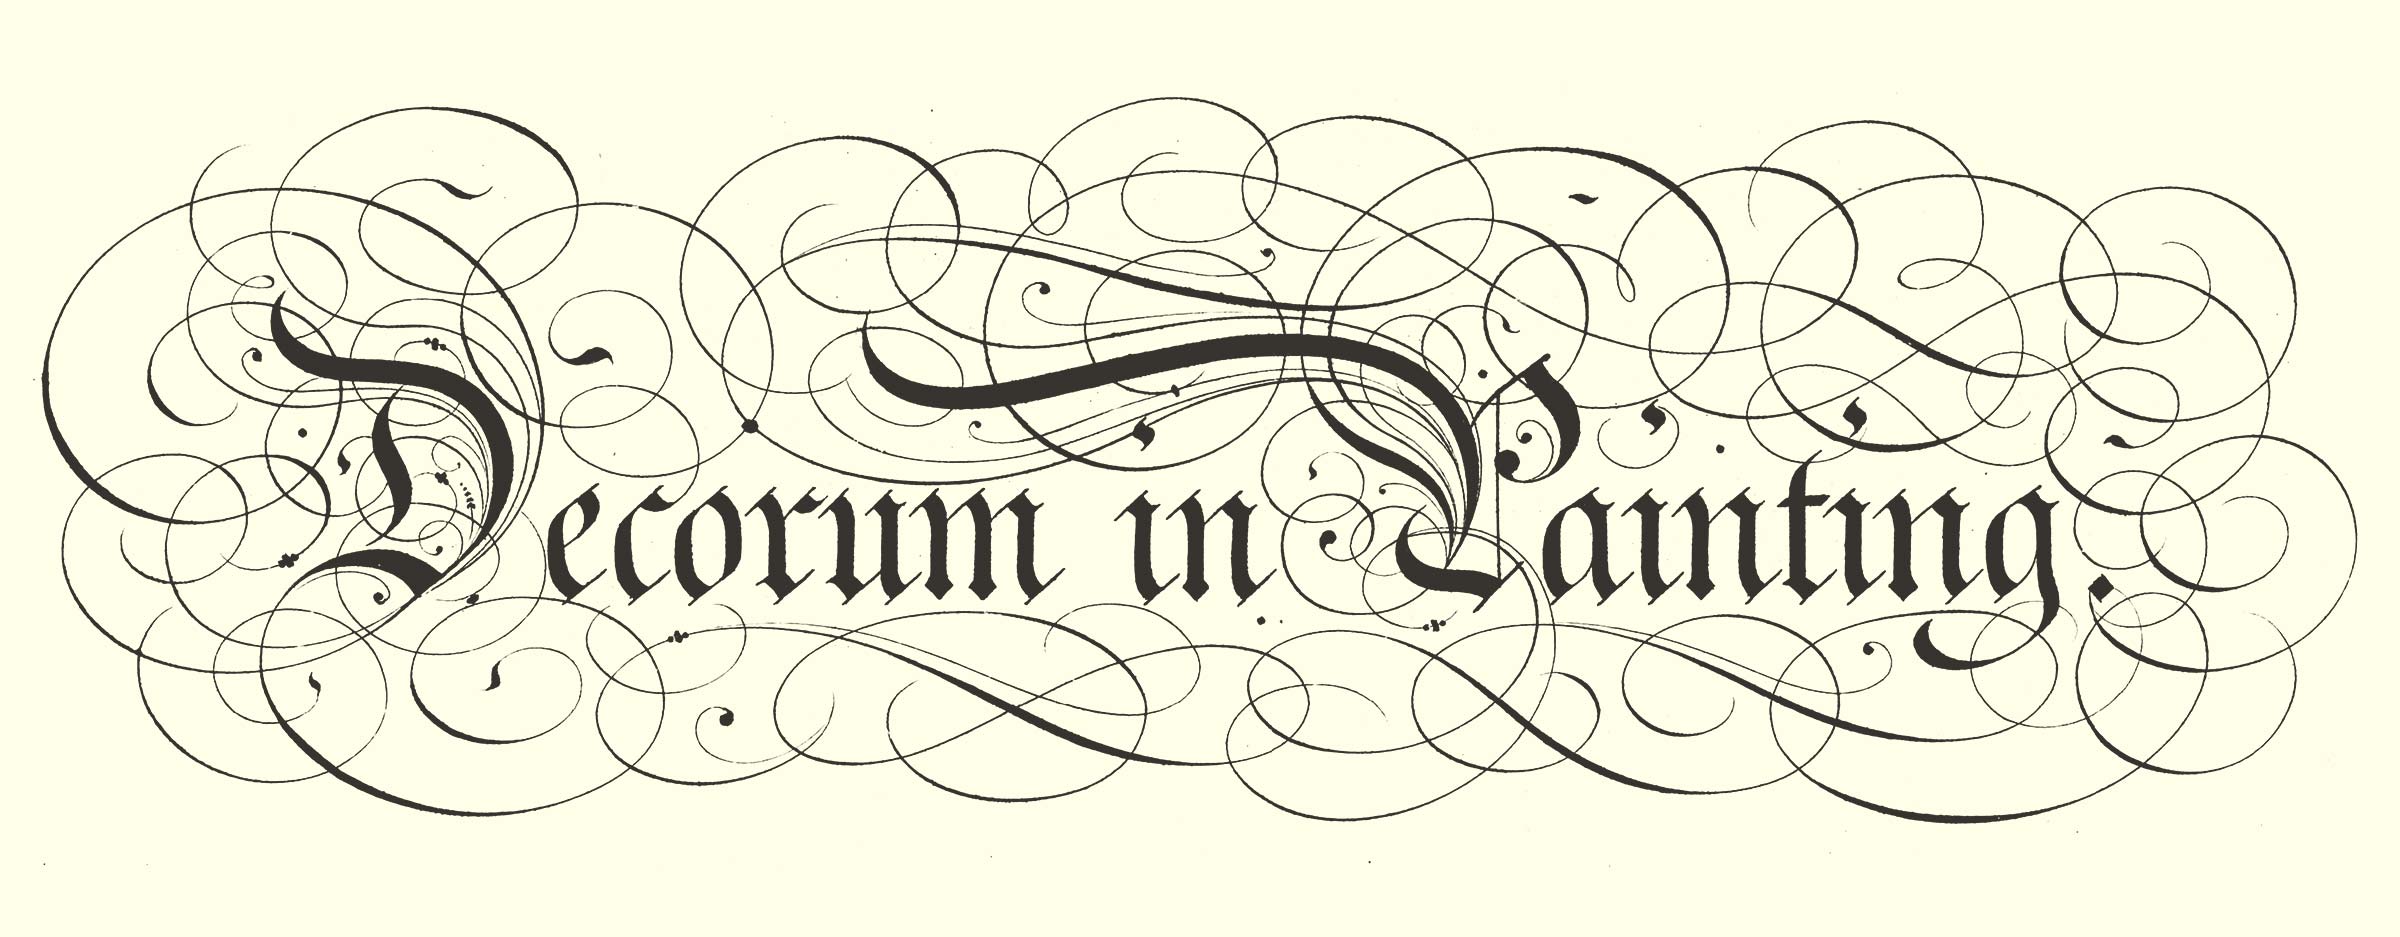 Decorum in Painting.